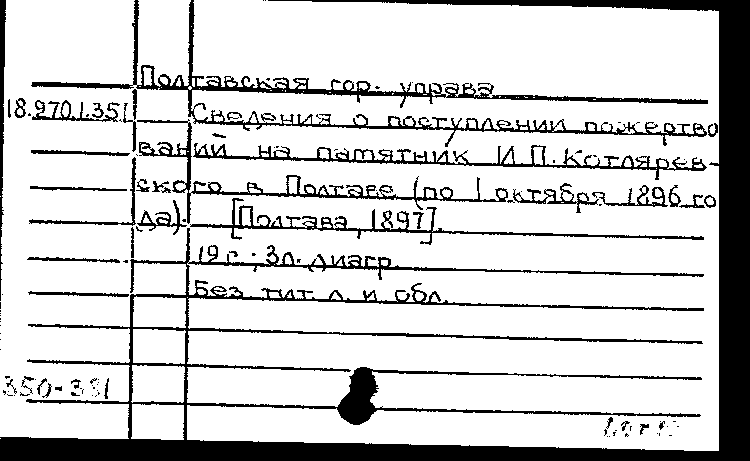 Полтавская гор. управа
18.970.1.351 Сведения о поступлении пожертво
ваний на памятник И.П.Котлярев-
ского в Полтаве (по 1 октября 1896 го
да). [Полтава, 1897].
19 с.; 3л. диагр.
Без тит. л. и обл.
350-331